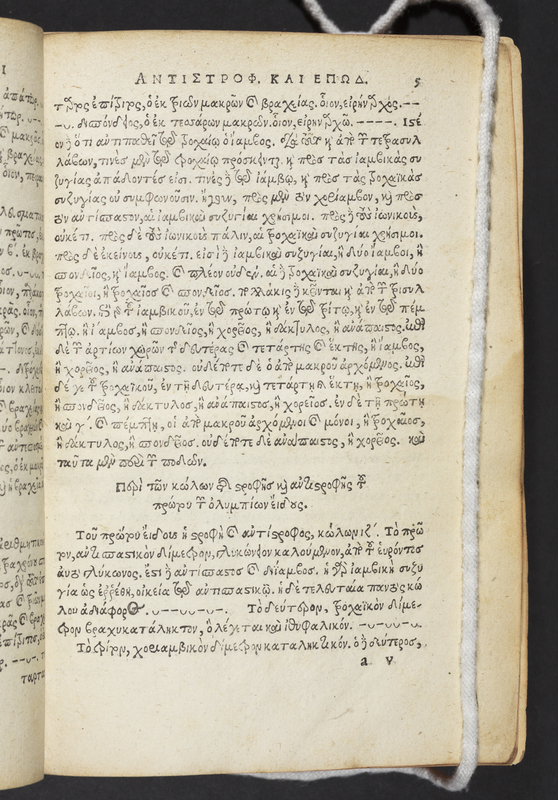 ΑΝΤΙΣΤΡΟΦ. ΚΑΙ ΕΠΩΔ. 5
τέταρτος ἐπίτριτος, ὁ ἐκ τριῶν μακρῶν καὶ βραχείας. οἷον, εἰρήναρχος. – –
– ᴗ. δισπόνδειος, ὁ ἐκ τεσσάρων μακρῶν. οἷον, εἰρηνάρχω. – – – –. Ἰστέ
ον δὲ ὅτι ἀντιπαθεῖ τῷ τροχαίῳ ὁ ἴαμβος. διὰ τοῦτο καὶ ἀπὸ τῶν τετρασυλ
λάβων, τινὲς μὲν τῷ τροχαίῳ πρόσκεινται, καὶ πρὸς τὰς ἰαμβικὰς συ
ζυγίας ἀπάδοντές εἰσι. τινὲς δὲ τῷ ἰάμβῳ, καὶ πρὸς τὰς τροχαϊκὰς
συζυγίας οὐ συμφωνοῦσιν. ἤγουν, πρὸς μὲν τὸν χορίαμβον, καὶ πρὸς
τὸν ἀντίσπαστον, αἱ ἰαμβικαὶ συζυγίαι χρήσιμοι. πρὸς δὲ τοὺς ἰωνικοὺς,
οὐκέτι. πρὸς δὲ τοὺς ἰωνικοὺς πάλιν, αἱ τροχαϊκαὶ συζυγίαι χρήσιμοι.
πρὸς δὲ ἐκείνους, οὐκέτι. εἰσὶ δὲ ἰαμβικαὶ συζυγίαι, ἢ δύο ἴαμβοι, ἢ
σπονδεῖος, καὶ ἴαμβος. καὶ πλέον οὐδέν. αἱ δὲ τροχαϊκαὶ συζυγίαι, ἢ δύο
τροχαῖοι, ἢ τροχαῖος καὶ σπονδεῖος. πολλάκις δὲ κεῖνται καὶ ἀπὸ τῶν τρισυλ
λάβων. ἐπὶ τοῦ ἰαμβικοῦ, ἐν τῷ πρώτῳ καὶ ἐν τῷ τρίτῳ, καὶ ἐν τῷ πέμ
πτῳ. ἢ ἴαμβος, ἢ σπονδεῖος, ἢ χορεῖος, ἢ δάκτυλος, ἢ ἀνάπαιστος. ἐπὶ
δὲ τῶν ἀρτίων χωρῶν τῆς δευτέρας καὶ τετάρτης καὶ ἕκτης, ἢ ἴαμβος,
ἢ χορεῖος, ἢ ἀνάπαιστος. οὐδέποτε δὲ ὁ ἀπὸ μακροῦ ἀρχόμενος. ἐπὶ
δέ γε τοῦ τροχαϊκοῦ, ἐν τῇ δευτέρᾳ, καὶ τετάρτῃ καὶ ἕκτῃ, ἢ τροχαῖος,
ἢ σπονδεῖος, ἢ δάκτυλος, ἢ ἀνάπαιστος, ἢ χορεῖος. ἐν δὲ τῇ πρώτῃ
καὶ γ΄. καὶ πέμπτῃ, οἱ ἀπὸ μακροῦ ἀρχόμενοι καὶ μόνοι, ἢ τροχαῖος,
ἢ δάκτυλος, ἢ σπονδεῖος. οὐδέποτε δὲ ἀνάπαιστος, ἢ χορεῖος. καὶ
ταῦτα μὲν περὶ τῶν ποδῶν.
Περὶ τῶν κώλων τῆς στροφῆς καὶ ἀντιστροφῆς τοῦ
πρώτου τῶν ὀλυμπίων εἴδους.
Τοῦ πρώτου εἴδους ἡ στροφὴ καὶ ἀντίστροφος, κώλων ιζ΄. Τὸ πρῶ
τον, ἀντισπαστικὸν δίμετρον, γλυκώνειον καλούμενον, ἀπὸ τοῦ εὑρόντος
αὐτὸ Γλύκωνος. ἔστι δὲ ἀντίσπαστος καὶ διίαμβος. ἡ γὰρ ἰαμβικὴ συζυ
γία ὡς ἐρρέθη, οἰκεία τῷ ἀντισπαστικῷ. ἡ δὲ τελευταία παντὸς κώ
λου ἀδιάφορος. ᴗ – – ᴗ ᴗ – ᴗ –. Τὸ δεύτερον, τροχαϊκὸν δίμε
τρον βραχυκατάληκτον, ὃ λέγεται καὶ ἰθυφαλικόν. – ᴗ – ᴗ – ᴗ.
Τὸ τρίτον, χοριαμβικὸν δίμετρον καταληκτικόν. ὁ δὲ δεύτερος,
a v